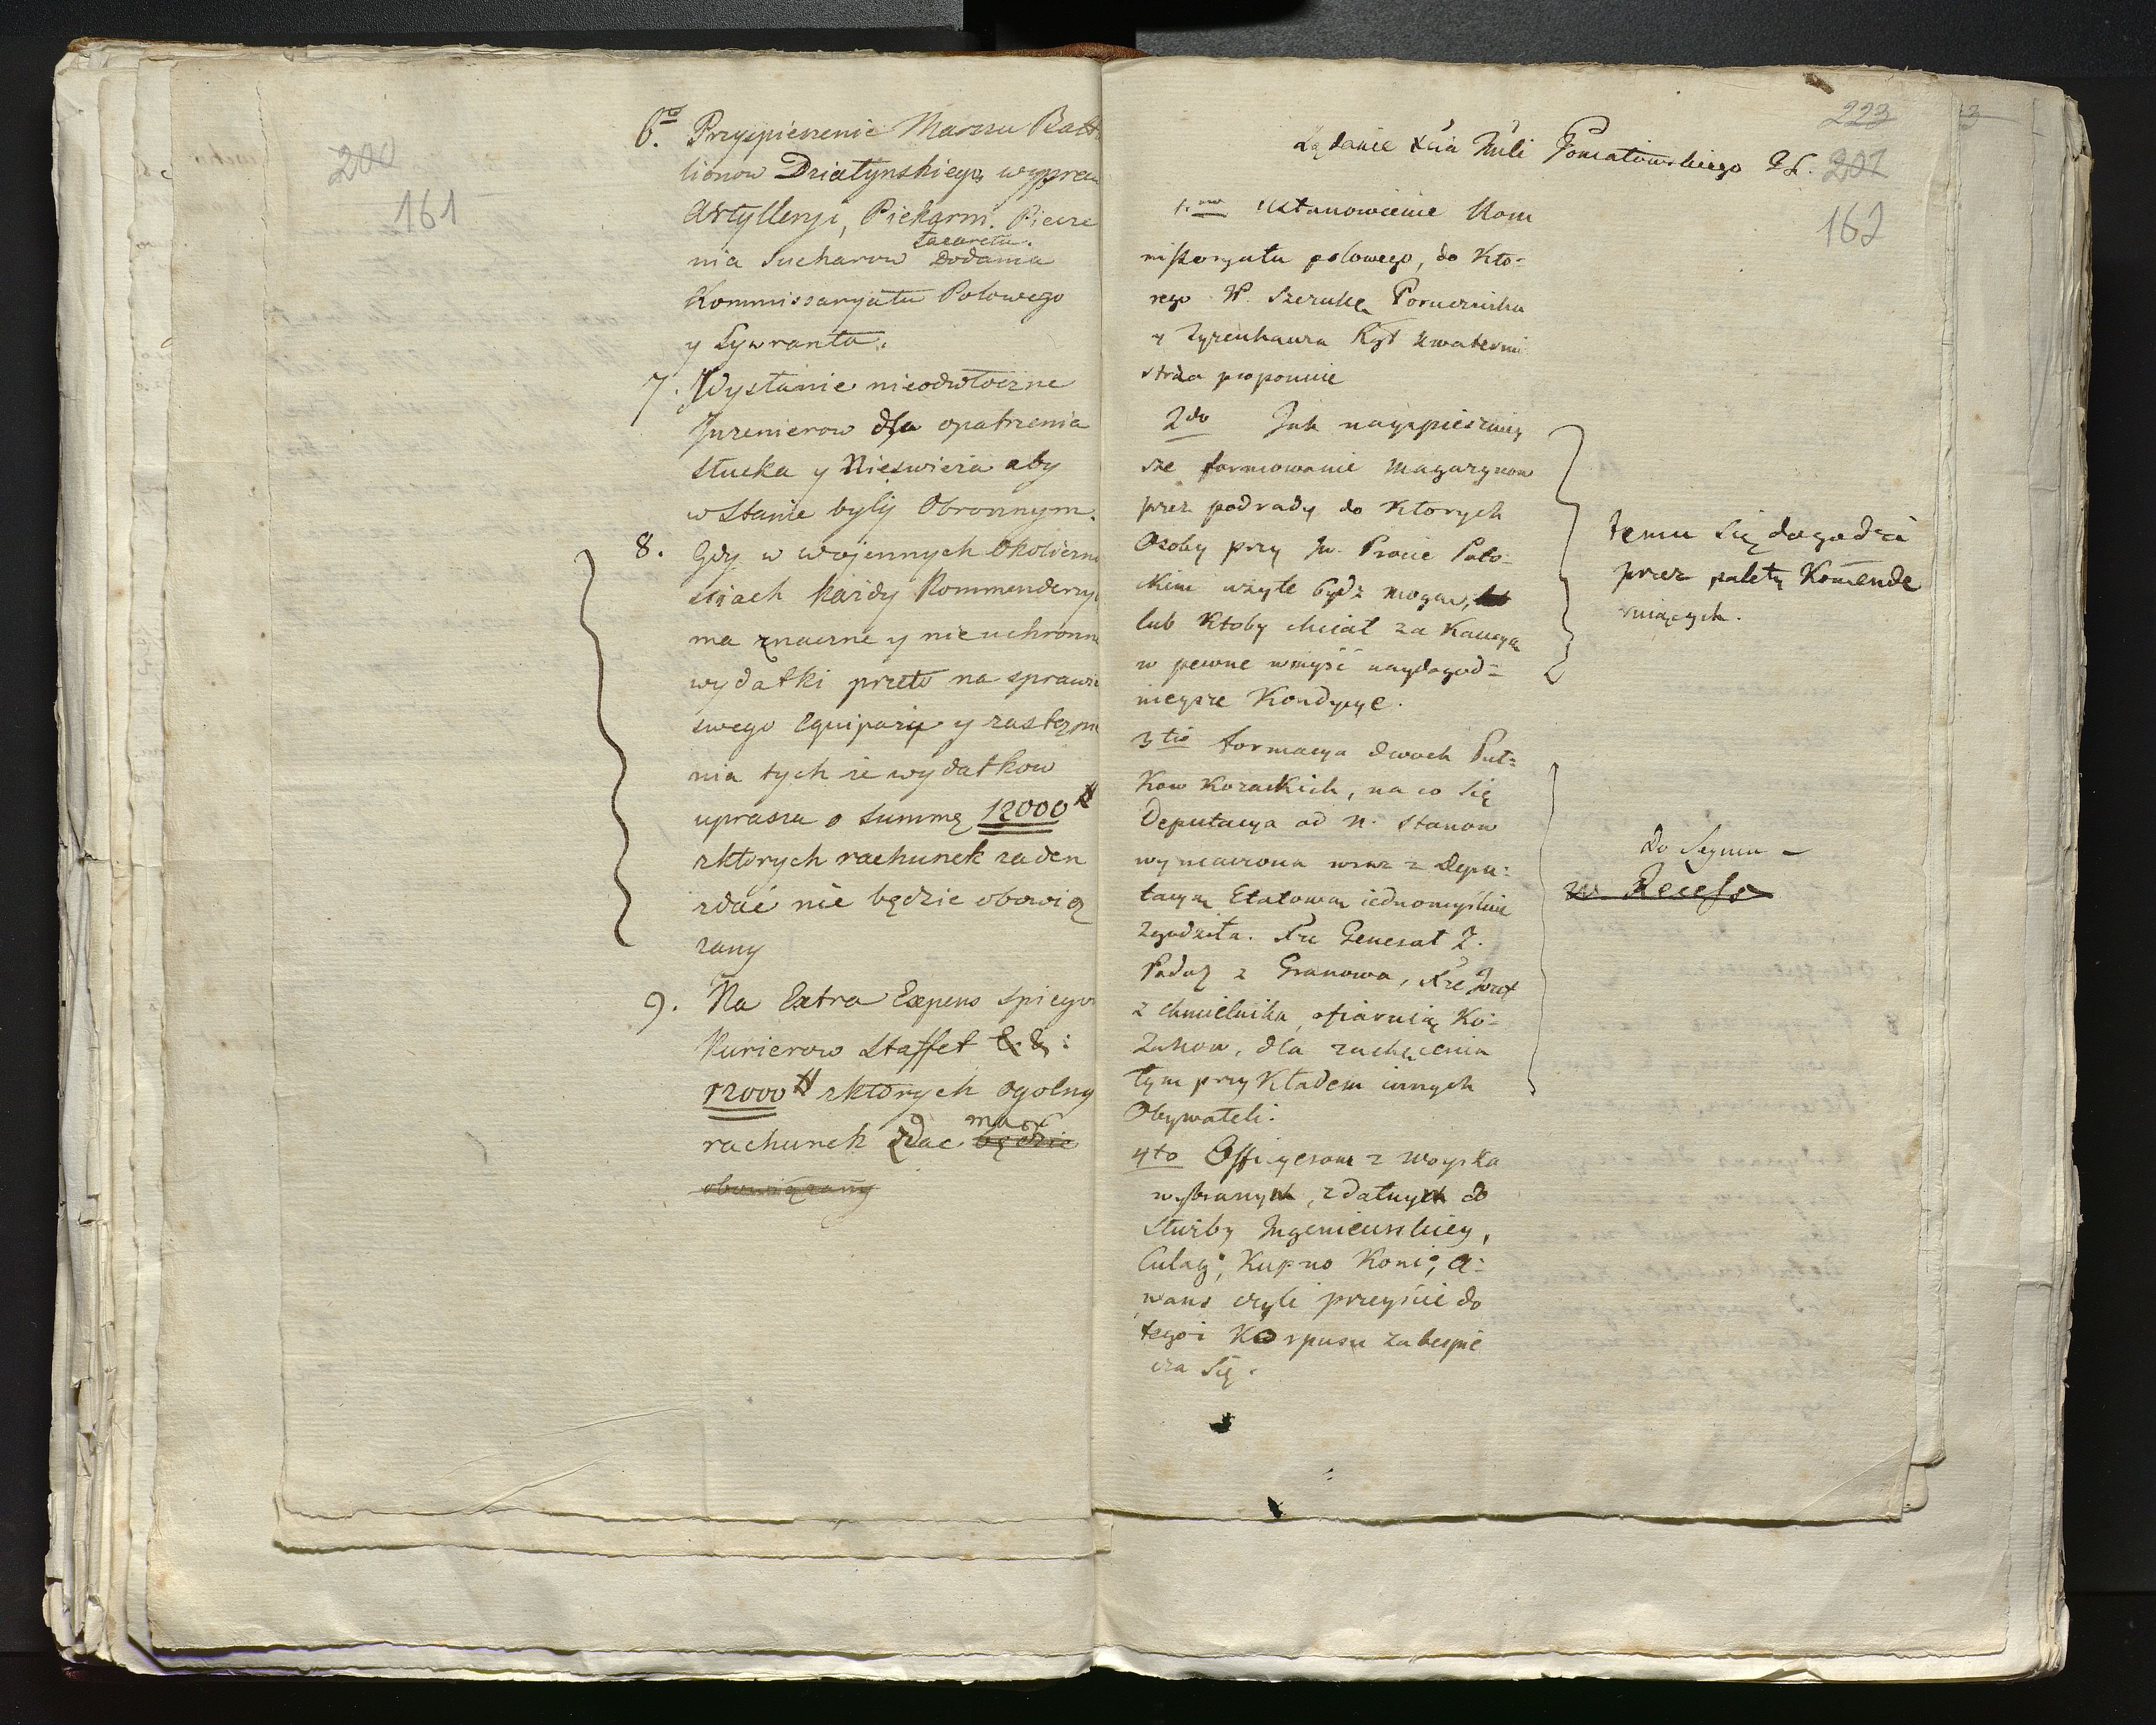 200
161
6to Przyspieszenie Marszu Batt
lionow Działynskiego, wypraw
Artylleryi, Piekarni. Piecze
Lazaretu.
nia Sucharow Dodania
Kommissaryatu Polowego
y Lywranta.
7. Wysłanie nieodwłoczne
Inzenierow dla opatrzenia
Słucka y Nieswieża aby
w Stanie byly Obronnym.
8. Gdy w wojennych okoliczno
sciach każdy Kommenderzy
ma znaczne y nieuchronn
wydatki przeto na sprawie
swego Equipażu y zastąpie
nia tych że wydatkow
uprasza o summę 12000 #
z ktorych rachunek zaden
zdać nie będzie obowią
zany
9. Na Extra Expens Spiegow
Kurierow Staffet & & :
12000 # z ktorych ogolny
ma
rachunek zdac będzie
obowiązany
223
Ządanie Xcia Jmci Poniatowskiego GL. 207
162
1.mo Ustanowienie Kom
missoryatu polowego, do kto=
rego W. Szczukę Porucznika
y Tyzenhauza Rgt Kwatermi
strza proponuie
2do Jak nayspieszniey
sze formowanie Magazynow
przez podrady do ktorych
Osoby przy Jw. Pro Poto=
ckim użyte bydz mogą,
lub ktoby chciał za Kaucyą
w pewne wniyść naydogod=
nieysze Kondycye.
3tio formacya dwoch Puł=
kow Kozackich, na co się
Deputacya od N. Stanow
wyznaczona wraz z Depu=
tacyą Etatową iednomyślnie
zgodziła. Xże Generał Z.
Podol z Granowa, Xże Józef
z Chmielnika, ofiaruią Ko=
zakow, dla zachęcenia
tym przykładem innych
Obywateli.
4to Officyerom z woyska
wybranych, zdatnych do
służby Ingenieurskiey,
Culag, Kupno Koni, A=
wans czyli przeyście do
tegoż Korpusu zabespie
cza się.
temu się dogadza
przez palety Komende
ruiących.
do Seymu —
w Recess